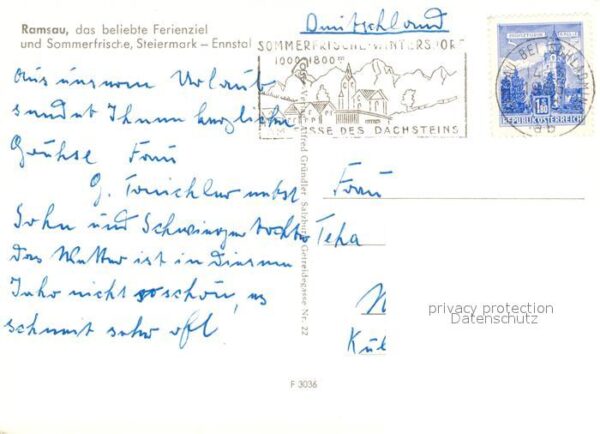 Ramsau, das beliebte Ferienziel
und Sommerfrische, Steiermark — Ennstal
Deutschland
SOMMERFRISCHE-WINTERSPORT
1000-1800m
DES DACHSTEINS
REPUBLIK ÖSTERREICH
Aus unserem Urlaub
sendet Ihnen herzliche
Grühse Frau
G. nebst
Sohn und Schwiegertochter
Das Wetter ist in diesem
Jahr nicht so schön, es
schneit sehr oft
Alfred Gründler, Salzburg, Getreidegasse Nr. 22
Frau
privacy protection
Datenschutz
F 3036